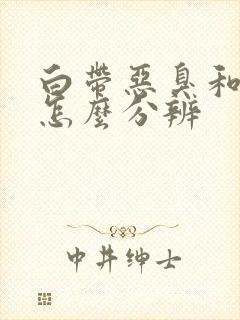 白带惡臭和
怎麼分辨
中井绅士